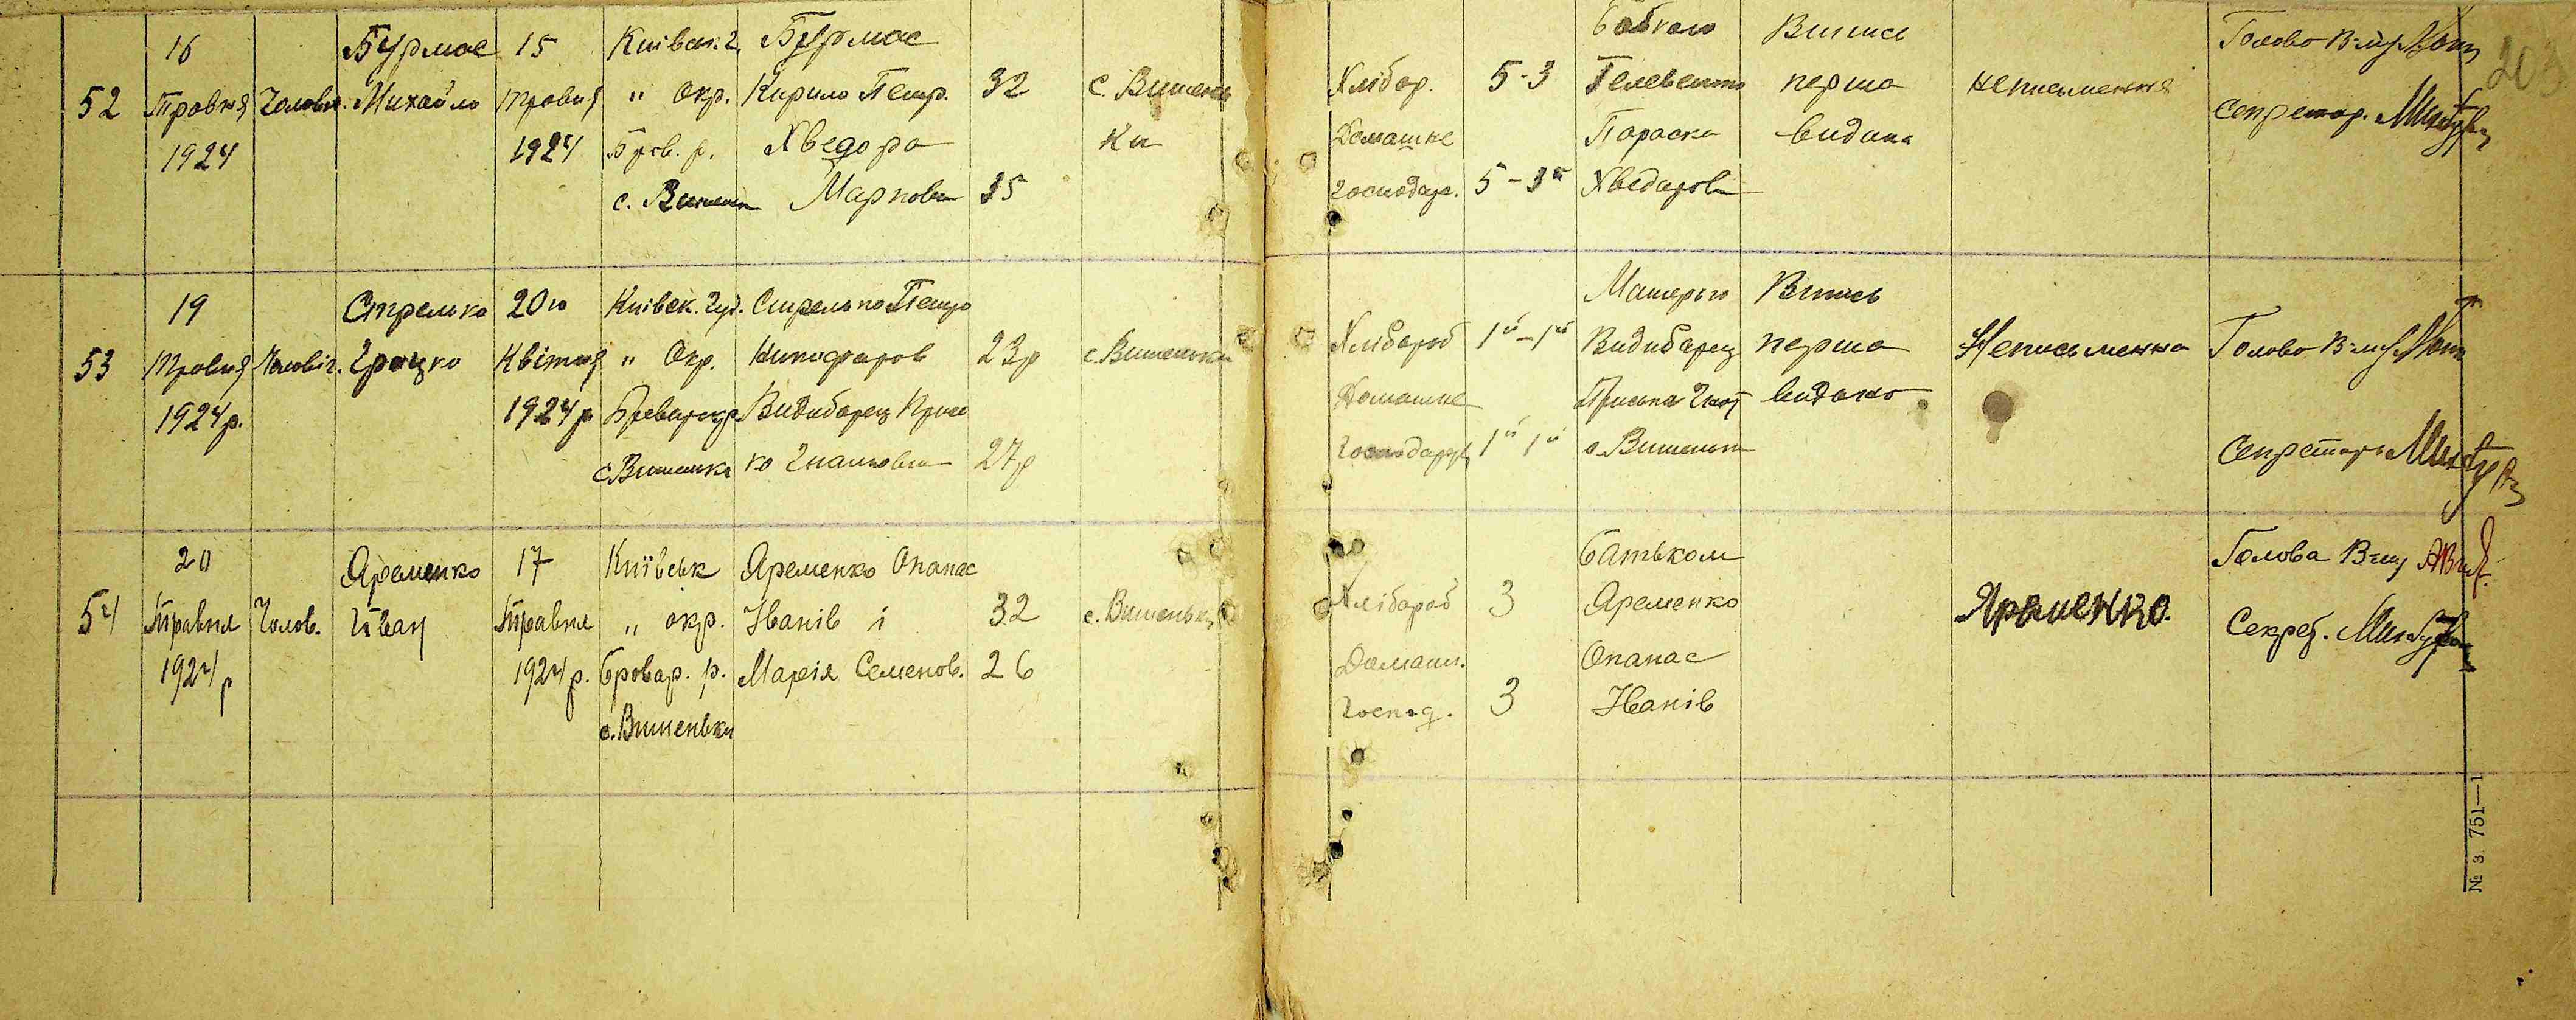 52
16
Травня
1924
Чоловіч.
Бурмас
Михайло
15
травня
1924
Київськ. г.
" Окр.
Бров. р.
с. Вишеньки
Бурмас
Кирило Петр.
Хведора
Маркова
32
35
с. Вишень
ки
Хлібор.
Домашне
господар.
5-3
5-3й
Параска
Хведарова
Випись
перша
видана
неписьменна
Голова
Секретар.
203
53
19
травня
1924р.
Чоловіч.
Стрелько
Грицко
20го
Квітня
1924р
Київськ. губ.
" Окр.
с Вишеньки
Стрелько Петро
Никифоров
Видиборец Прись
ко Гнатовна
23р
27р
с. Вишеньки
Хлібороб
Домашне
господарув
1й-1й
1й 1й
Матерью
Видиборец
Приська Гнат
с. Вишеньки
Випись
перша
видана
Неписьменна
Голова
Секретарь
54
20
Травня
1924р
Чолов.
Яременко
Іван
17
Травня
1924р.
Київськ
" окр.
Бровар. р.
с. Вишеньки
Яременко Опанас
Іванів і
Марія Семенов.
32
26
с. Вишеньки
Хлібороб
Домашн.
господ.
3
3
Батьком
Яременко
Опанас
Іванів
Яременко.
Голова
Секрет.
№ з. 751—1